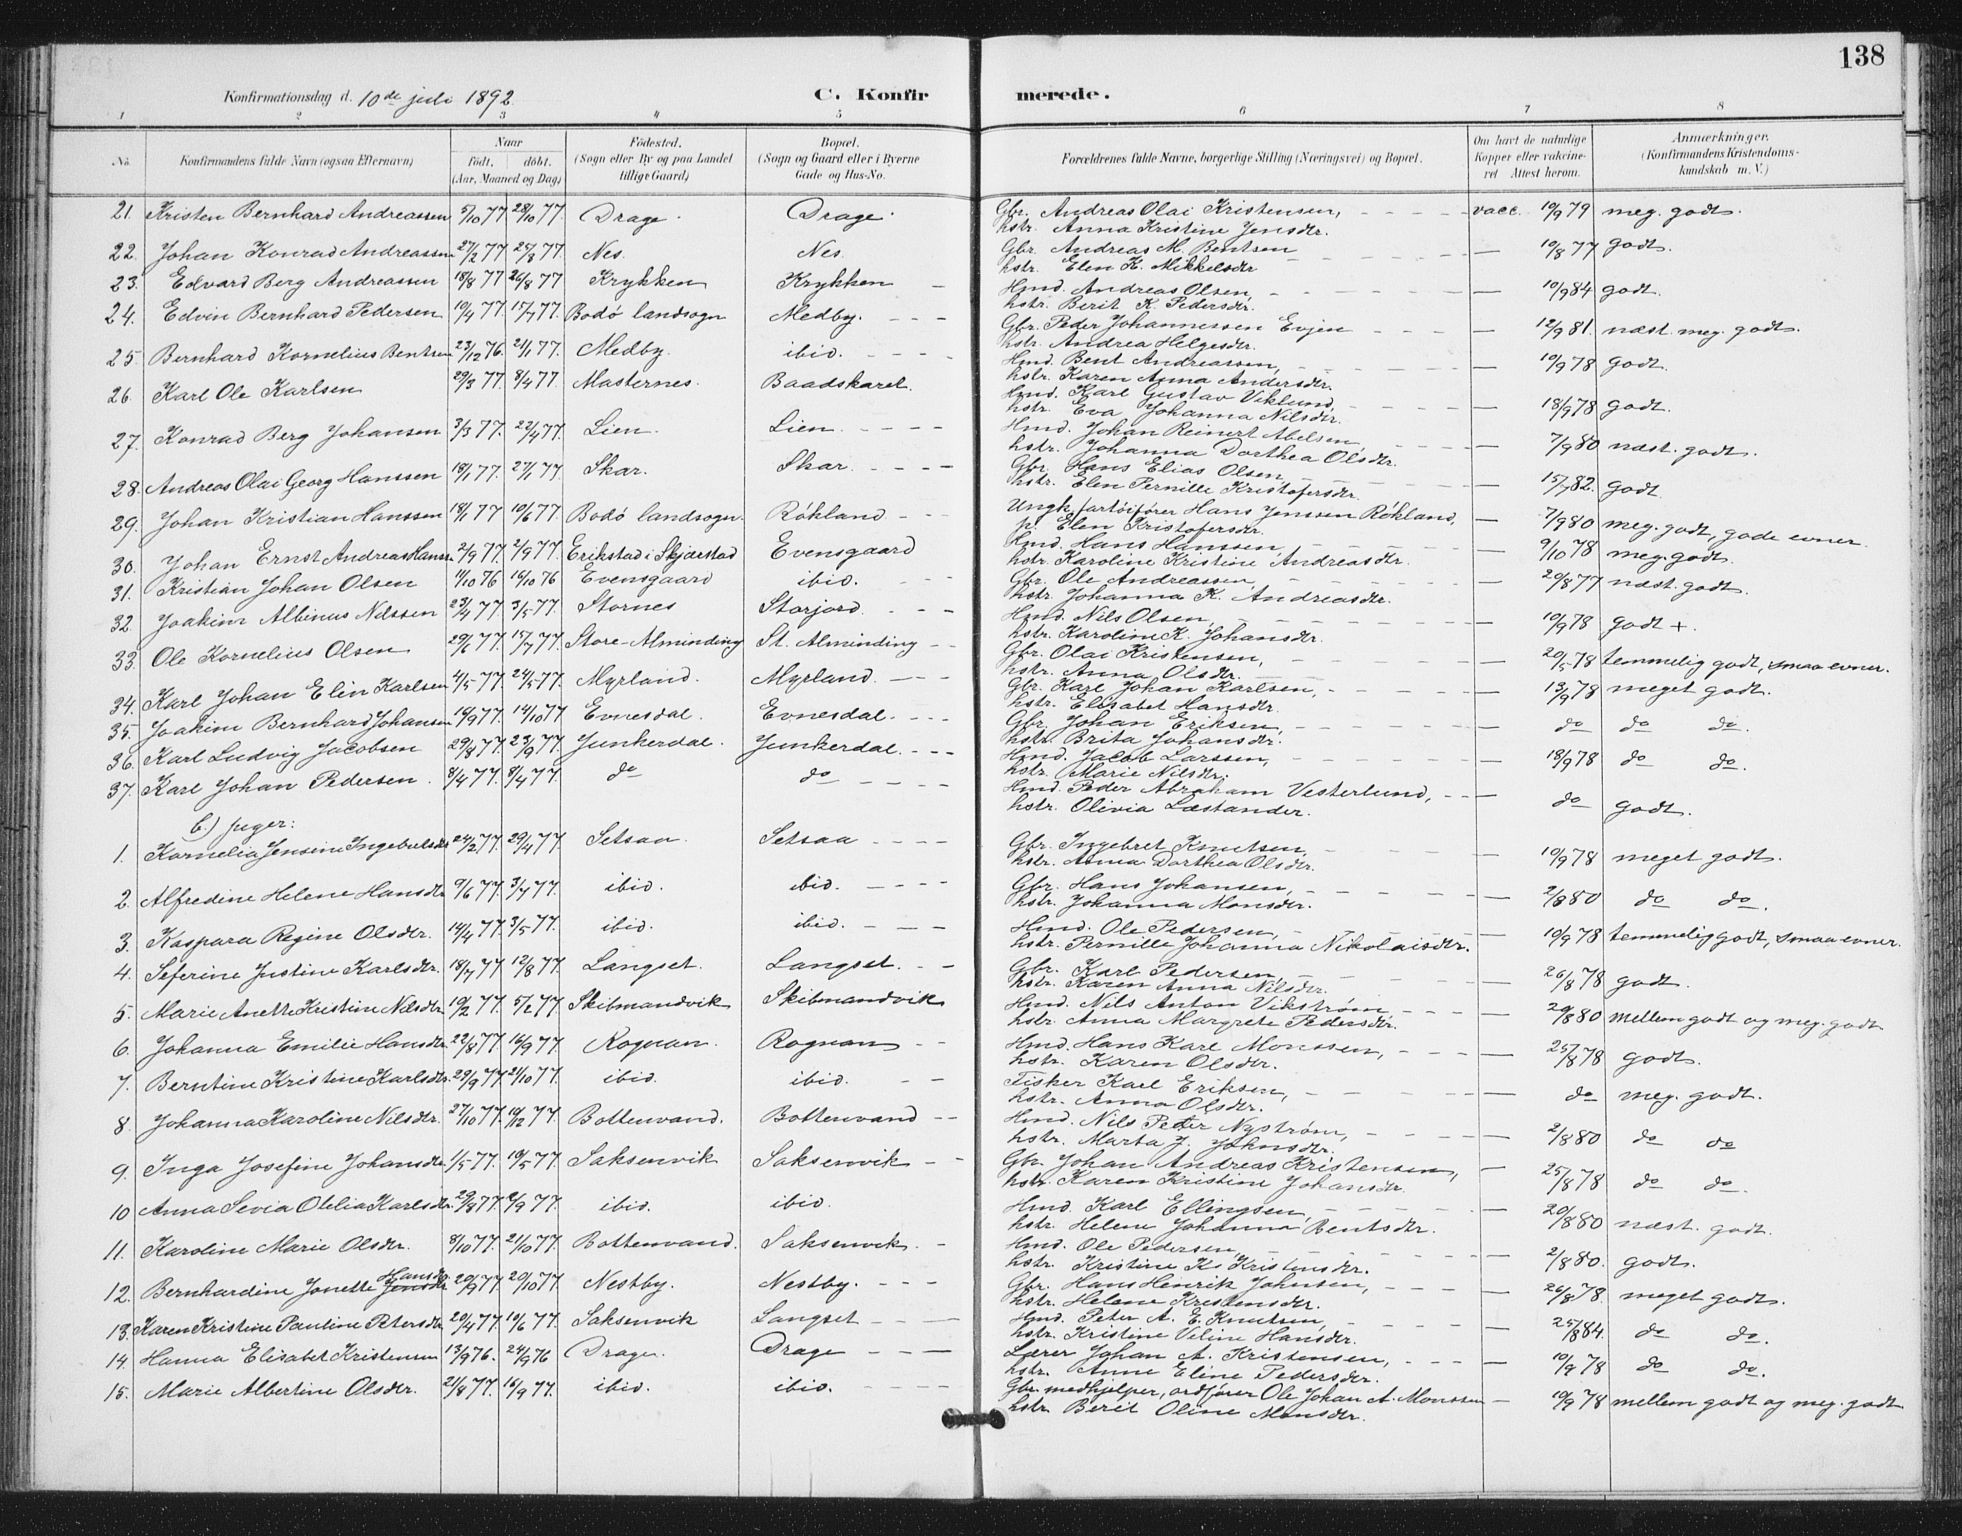 138
Konfirmationsdag d. 10de juli 1892.
C. Konfirmerede.
1 2 3 4 5 6 7 8
No. Konfirmandens fulde Navn (ogsaa Efternavn) Naar født, døbt. (Aar, Maaned og Dag) Fødested. (Sogn eller By og paa Landet tillige Gaard) Bopæl. (Sogn og Gaard eller i Byerne Gade og Hus-No. Forældrenes fulde Navne, borgerlige Stilling (Næringsvei) og Bopæl. Om havt de naturlige Kopper eller vakcineret Attest herom. Anmærkninger. (Konfirmandens Kristendomskundskab m. V.)
21. Kristen Bernhard Andreassen 5/10 77 28/10 77. Drage. Drage. Gbr. Andreas Olai Kristensen, vacc. 10/9 79 meg. godt.
hstr. Anna Kristine Jensdtr.
22. Johan Konrad Andreassen 27/2 77 25/3 77. Nes. Nes. Gbr. Andreas M. Bentsen — 10/8 77 godt.
hstr. Elen K. Mikkelsdtr
23. Edvard Berg Andreassen 18/8 77 26/8 77 Krykken Krykken Hmd. Andreas Olsen, — 10/9 84 godt.
hstr. Berit K. Pedersdtr.
24. Edvin Bernhard Pedersen 10/4 77. 15/7 77. Bodø landsogn Medby. Gbr. Peder Johannessen Evjen — 12/9 81. næst. meg. godt.
hstr. Andrea Helgesdtr.
25. Bernhard Kornelius Bentsen 23/12 76. 21/1 77. Medby. ibid. Hmd. Bent Andreassen, — 10/9 78 godt.
hstr. Karen Anna Andersdtr.
26. Karl Ole Karlsen 29/3 77. 8/4 77. Masternes. Baadskaret. Hmd. Karl Gustav Viklund, — 18/9 78 godt.
hstr. Eva Johanna Nilsdtr.
27. Konrad Berg Johansen 3/3 77. 22/4 77. Lien. Lien. Hmd. Johan Reinert Abelsen, — 7/9 80 næst. godt.
hstr. Johanna Dorthea Olsdtr.
28. Andreas Olai Georg Hanssen 18/1 77. 27/1 77 Skar. Skar. Gbr. Hans Elias Olsen — 15/7 82. godt
hstr. Elen Pernille Kristofersdtr.
29. Johan Kristian Hanssen 18/1 77 10/6 77. Bodø landsogn. Røkland Ungk. fartøifører Hans Jenssen Røkland, — 7/9 80 meg. godt, gode evner
p. Elen Kristofersdtr.
30. Johan Ernst Andreas Hanssen 2/9 77. 2/9 77. Erikstad i Skjærstad Evensgaard Hmd. Hans Hanssen, — 9/10 78 meg. godt.
hstr. Karoline Kristine Andreasdtr.
31. Kristian Johan Olsen 11/10 76 16/10 76 Evensgaard ibid. Gbr. Ole Andreassen, — 20/8 77 næst. godt.
hstr. Johanna K. Andreasdtr.
32. Joakim Albinus Nilssen 23/4 77. 3/5 77. Stornes Storjord. Hmd. Nils Olsen, — 10/9 78 godt +.
hstr. Karoline K. Johansdtr.
33. Ole Kornelius Olsen 29/6 77. 15/7 77. Store-Alminding St. Alminding Gbr. Olai Kristensen, — 20/5 78 temmelig godt, smaa evner.
hstr. Anna Olsdtr.
34. Karl Johan Elin Karlsen 4/5 77. 24/5 77. Myrland. Myrland. Gbr. Karl Johan Karlsen, — 13/9 78 meget godt.
hstr. Elisabet Hansdtr.
35. Joakim Bernhard Johansen 16/9 77. 14/10 77 Evnesdal. Evnesdal. Gbr. Johan Eriksen, — do do do.
hstr. Brita Johansdtr.
36. Karl Ludvig Jacobsen 29/8 77. 23/9 77. Junkerdal. Junkerdal. Hmd. Jacob Larssen, — 18/9 78 do do.
hstr. Marie Nilsdtr.
37. Karl Johan Pedersen. 8/4 77. 8/4 77. do do Hmd. Peder Abraham Vesterlund, — do godt.
hstr. Olivia Læstander.
b.) piger:
1. Kornelia Jensine Ingebretsdtr 24/2 77. 29/4 77. Setsaa. Setsaa Gbr. Ingebret Knutsen, — 10/9 78 meget godt.
hstr. Anna Dorthea Olsdtr.
2. Alfredine Helene Hansdtr 9/6 77. 3/7 77. ibid. ibid. Gbr. Hans Johansen, — 2/8 80 do do.
hstr. Johanna Monsdtr.
3. Kaspara Regine Olsdtr. 14/4 77. 3/5 77. ibid. ibid. Hmd. Ole Pedersen, — 10/9 78 temmelig godt, smaa evner.
hstr. Pernille Johanna Nikolaisdtr.
4. Seferine Justine Karlsdtr. 18/7 77 12/8 77. Langset. Langset. Gbr. Karl Pedersen, — 26/8 78 godt.
hstr. Karen Anna Nilsdtr.
5. Marie Anette Kristine Nilsdtr 10/2 77. 5/2 77. Skibmandvik Skibmandvik Hmd. Nils Anton Vikstrøm, — 20/8 80 mellem godt og meg. godt
hstr. Anna Margrete Pedersdtr.
6. Johanna Emilie Hansdtr. 22/8 77. 16/9 77. Rognan. Rognan Hmd. Hans Karl Monssen, — 25/8 78 godt.
hstr. Karen Olsdtr.
7. Berntine Kristine Karlsdtr. 29/9 77. 21/10 77. ibid. ibid. Fisker Karl Eriksen, — do meg. godt.
hstr. Anna Olsdtr.
8. Johanna Karoline Nilsdtr. 27/10 77. 10/12 77. Bottenvand. Bottenvand Hmd. Nils Peter Nystrøm, — 2/8 80 do do
hstr. Marta J. Johnsdtr.
9. Inga Josefine Johansdtr 1/5 77. 10/5 77. Saksenvik Saksenvik Gbr. Johan Andreas Kristensen, — 25/8 78 do do.
hstr. Karen Kristine Johansdtr.
10 Anna Sevia Otelia Karlsdtr. 29/8 77. 2/9 77. ibid. ibid. Hmd. Karl Ellingsen, — 20/8 80 næst. godt.
hstr. Helene Johanna Bentsdtr.
11. Karoline Marie Olsdtr. 8/10 77. 21/10 77. Bottenvand. Saksenvik. Hmd. Ole Pedersen, — 2/8 80. godt.
hstr. Kristine K. Kristensdtr.
12. Bernhardine Jonette Jensdtr Hansdtr 20/9 77 20/10 77. Nestby. Nestby. Gbr. Hans Henrik Johnsen, — 26/8 78. meget godt.
hstr. Helene Kristensdtr.
13. Karen Kristine Pauline Petersdtr 20/4 77. 10/6 77. Saksenvik Langset Hmd. Peter A. E. Knutsen, — 25/8 84. do do.
hstr. Kristine Veline Hansdtr.
14. Hanna Elisabet Kristensen 13/9 76. 24/9 76 Drage. Drage Lærer Johan A. Kristensen, — 10/9 78 do do.
hstr. Anne Eline Pedersdtr.
15. Marie Albertine Olsdtr. 21/8 77. 16/9 77. ibid. ibid. Gbr. medhjelper, ordfører Ole Johan A. Monssen — 10/9 78 mellem godt og meg. godt
hstr. Berit Oline Monsdtr.